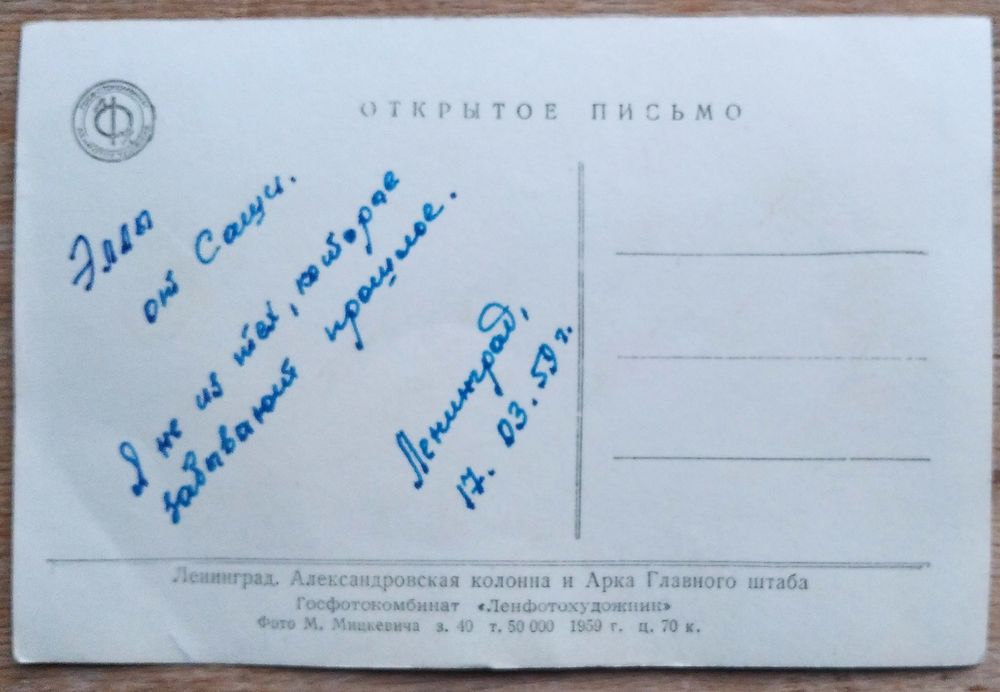 ОТКРЫТОЕ ПИСЬМО
Эллы
от Саши.
Я не из тех, которае
забывают прошлое.
Ленинград,
17. 03. 59 г.
Ленинград. Александровская колонна и Арка Главного штаба
Госфотокомбинат «Ленфотохудожник»
Фото М. Мицкевича з. 40 т. 50 000 1959 г. ц. 70 к.